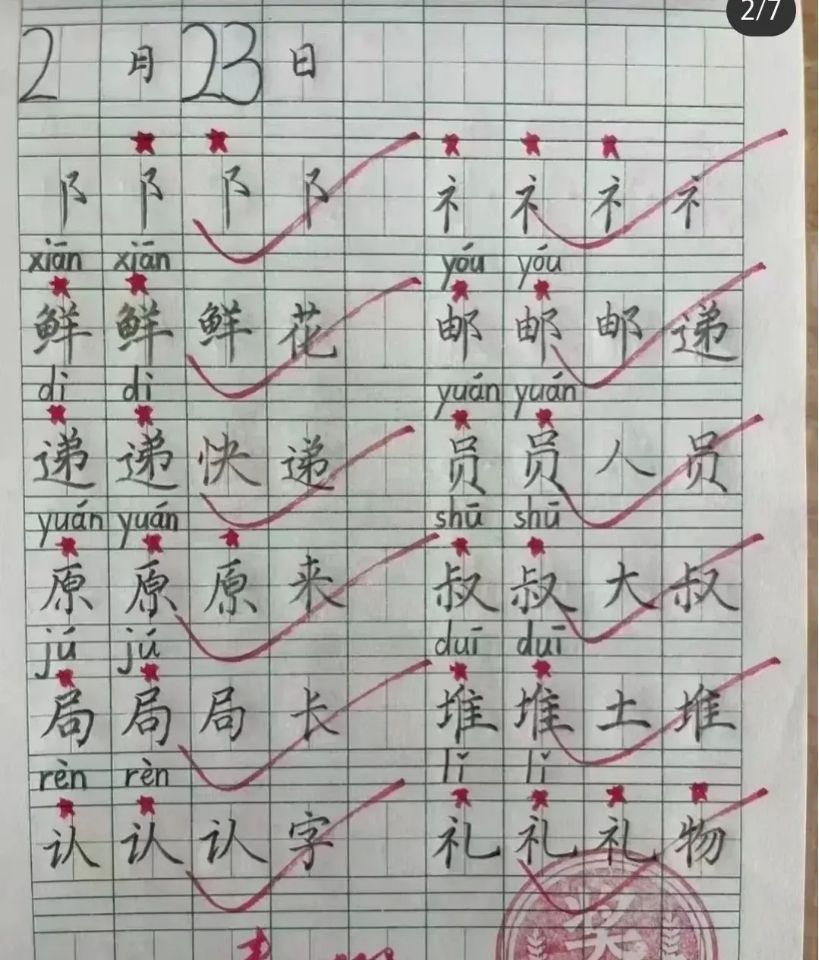 2/7
2月23日
阝 阝 阝 阝 礻 礻 礻 礻
xiān xiān yóu yóu
鲜 鲜 鲜 花 邮 邮 邮 递
di di yuán yuán
递 递 快 递 员 员 人 员
yuán yuán shū shū
原 原 原 来 叔 叔 大 叔
jú jú duī duī
局 局 局 长 堆 堆 土 堆
rèn rèn lǐ lǐ
认 认 认 字 礼 礼 礼 物
奖